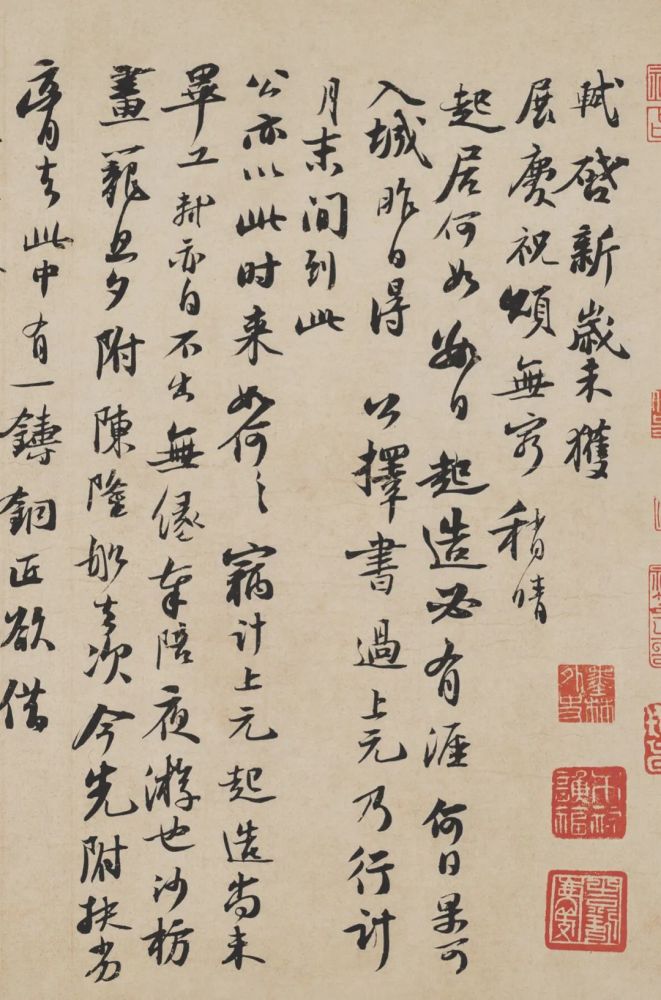 軾啓新歲未獲
展慶祝頌無窮稍晴
起居何如數日起造必有涯何日果可
入城昨日得 公擇書過上元乃行計
月末間到此
公亦以此時来如何々竊計上元起造尚未
畢工軾亦自不出無緣奉陪夜遊也沙枋
畫籠旦夕附陳隆船去次今先附扶劣
膏去此中有一鑄銅匠欲借